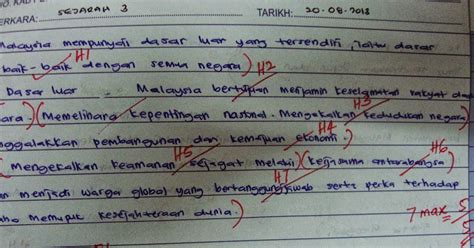 PERKARA: SEJARAH 3 TARIKH: 20.08.2018
Malaysia mempunyai dasar luar yang tersendiri, iaitu dasar
baik-baik dengan semua negara) H1 H2
Dasar luar Malaysia bertujuan menjamin keselamatan rakyat dan
ara) (Memelihara kepentingan nasional. Mengekalkan kedudukan negara) H3
nggalakkan pembangunan dan kemajuan ekonomi.) H4
(Mengekalkan keamanan sejagat melalui) (kerjasama antarabangsa) H5 H6
an menjadi warga global yang bertanggungjawab serta perka terhadap
aho memupuk kesejahteraan dunia.)
7 max = 5
5